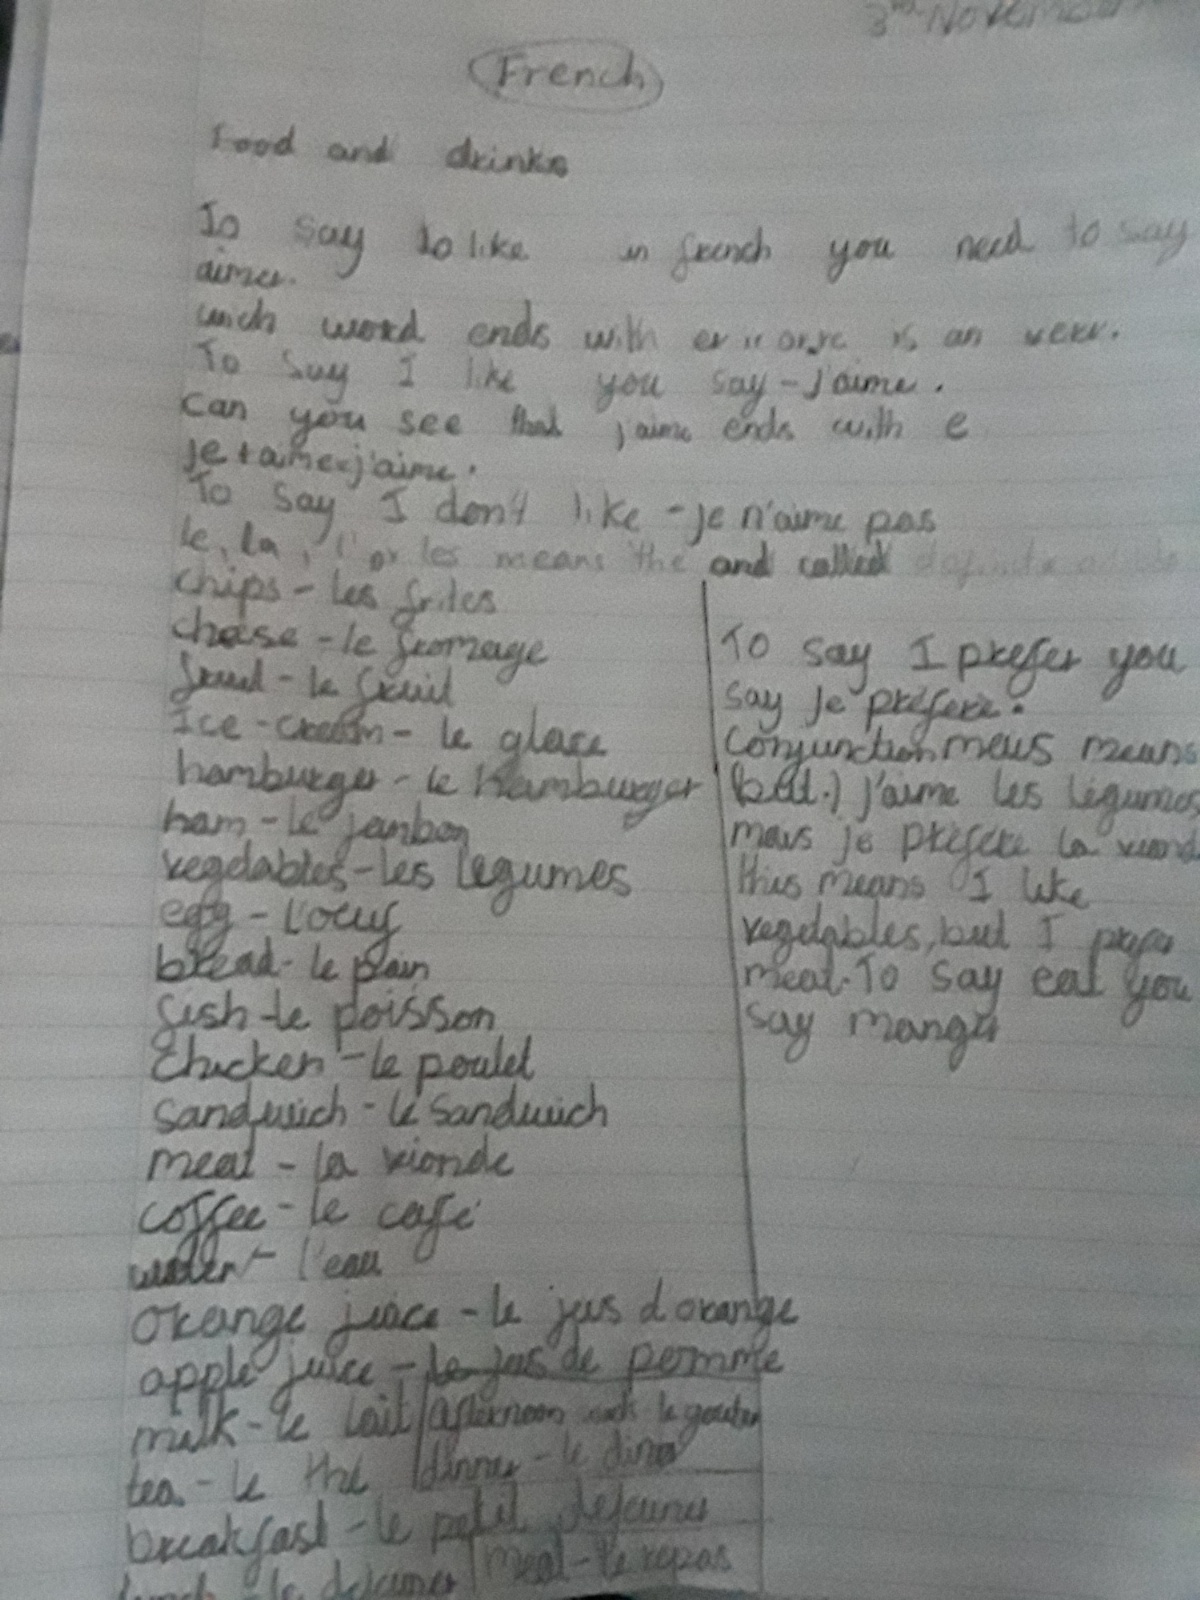 3rd November
French
Food and drinks
To say to like in french you need to say
aimer.
wich word ends with er ir or re is an verr.
To say I like you say - j'aime.
Can you see that j'aime ends with e
je + aime = j'aime.
To say I don't like - je n'aime pas
le, la, l' or les means the and called
chips - les frites
chesse - le fromage
fruit - le fruit
Ice-cream - le glace
hamburger - le hamburger
ham - le jambon
vegetables - les légumes
egg - l'oeuf
bread - le pain
fish - le poisson
Chicken - le poulet
Sandwich - le sandwich
meat - la viande
coffee - le café
water - l'eau
orange juice - le jus d'orange
apple juice - le jus de pomme
milk - le lait
tea - le thé
breakfast - le petit dejeuner
lunch - le dejeuner
To say I prefer you
say je préfère.
Conjunction mais means
(but.) j'aime les légumes
mais je préfère la viand
this means I like
vegetables, but I prefer
meat. To say eat you
say manger
afternoon le gouter
dinner - le diner
meal - le repas